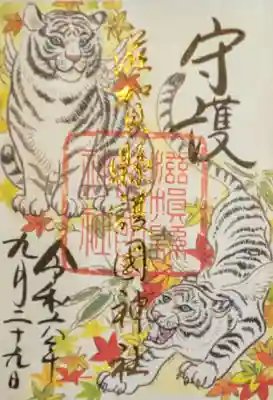 守護
滋賀縣護國神社
令和六年
九月二十九日